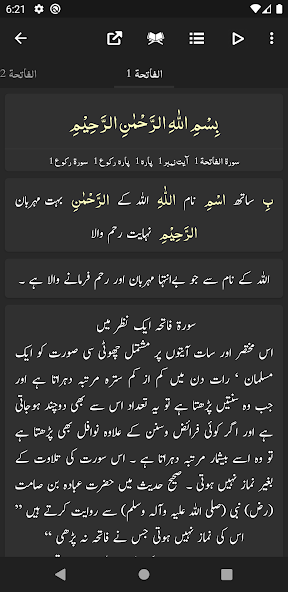 6:21
الفاتحة 1
الفاتحة 2
بِسْمِ اللّٰهِ الرَّحْمٰنِ الرَّحِيْمِ
سورة الفاتحة 1 آیت نمبر 1 پارہ 1 پارہ رکوع 1 سورة رکوع 1
بِ ساتھ اسْمِ نام اللّٰهِ اللہ کے الرَّحْمٰنِ بہت مہربان
الرَّحِيْمِ نہایت رحم والا
اللہ کے نام سے جو بےانتہا مہربان اور رحم فرمانے والا ہے ۔
سورة فاتحہ ایک نظر میں
اس مختصر اور سات آیتوں پر مشتمل چھوٹی سی صورت کو ایک
مسلمان ‘ رات دن میں کم از کم سترہ مرتبہ دہراتا ہے اور
جب وہ سنتیں پڑھتا ہے تو یہ تعداد اس سے بھی دوچند ہوجاتی
ہے اور اگر کوئی فرائض وسنن کے علاوہ نوافل بھی پڑھتا ہے
تو وہ اسے بیشمار مرتبہ دہراتا ہے ۔ اس سورت کی تلاوت کے
بغیر نماز نہیں ہوتی ۔ صحیح حدیث میں حضرت عبادہ بن صامت
(رض) نبی (صلی اللہ علیہ وآلہ وسلم) سے روایت کرتے ہیں ’’
اس کی نماز نہیں ہوتی جس نے فاتحہ نہ پڑھی ‘‘